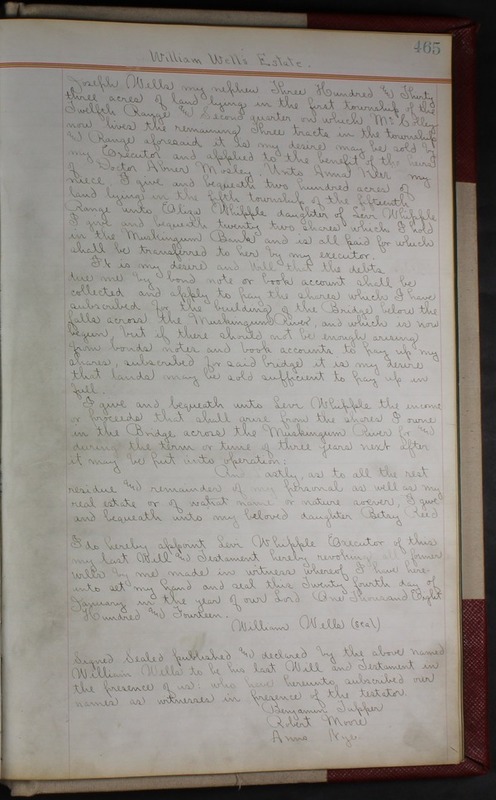 465
William Wells Estate.
Joseph Wells my nephew Three Hundred & Thirty
three acres of land lying in the first township of the
Twelfth Range & Second quarter on which
now lives the remaining Three tracts in the township
& Range aforesaid it is my desire may be sold by
my Executor and applied to the benefit of the heirs
of Doctor Abner Mosley. Unto Anna my
niece I give and bequeath two hundred acres of
land lying in the fifth township of the fifteenth
Range unto Eliza Whipple daughter of Levi Whipple
I give and bequeath twenty two shares which I hold
in the Muskingum Bank and is all paid for which
shall be transferred to her by my executor.
It is my desire and Will that the debts
due me by bond note or book account shall be
collected and apply to pay the shares which I have
subscribed for the building of the Bridge below the
falls across the Muskingum River, and which is now
begun but if there should not be enough arising
from bonds notes and book accounts to pay up my
shares, subscribed for said bridge it is my desire
that lands may be sold sufficient to pay up in
full.
I give and bequeath unto Levi Whipple the income
or proceeds that shall arise from the shares I owne
in the Bridge across the Muskingum River for &
during the term or time of three years next after
it may be put into operation.
lastly, as to all the rest
residue & remainder of my personal as well as my
real estate or of what name or nature soever, I give
and bequeath unto my beloved daughter Betsy Reed
I do hereby appoint Levi Whipple Executor of this
my last Will & Testament hereby revoking all former
wills by me made in witness whereof I have here-
unto set my hand and seal this Twenty fourth day of
January in the year of our Lord One Thousand Eight
Hundred & Fourteen.
William Wells (seal)
Signed Sealed published & declared by the above named
William Wells to be his last Will and Testament in
the presence of us: who have hereunto subscribed over
names as witnesses in presence of the testator.
Benjamin Tupper
Robert Moore
Anna Nye